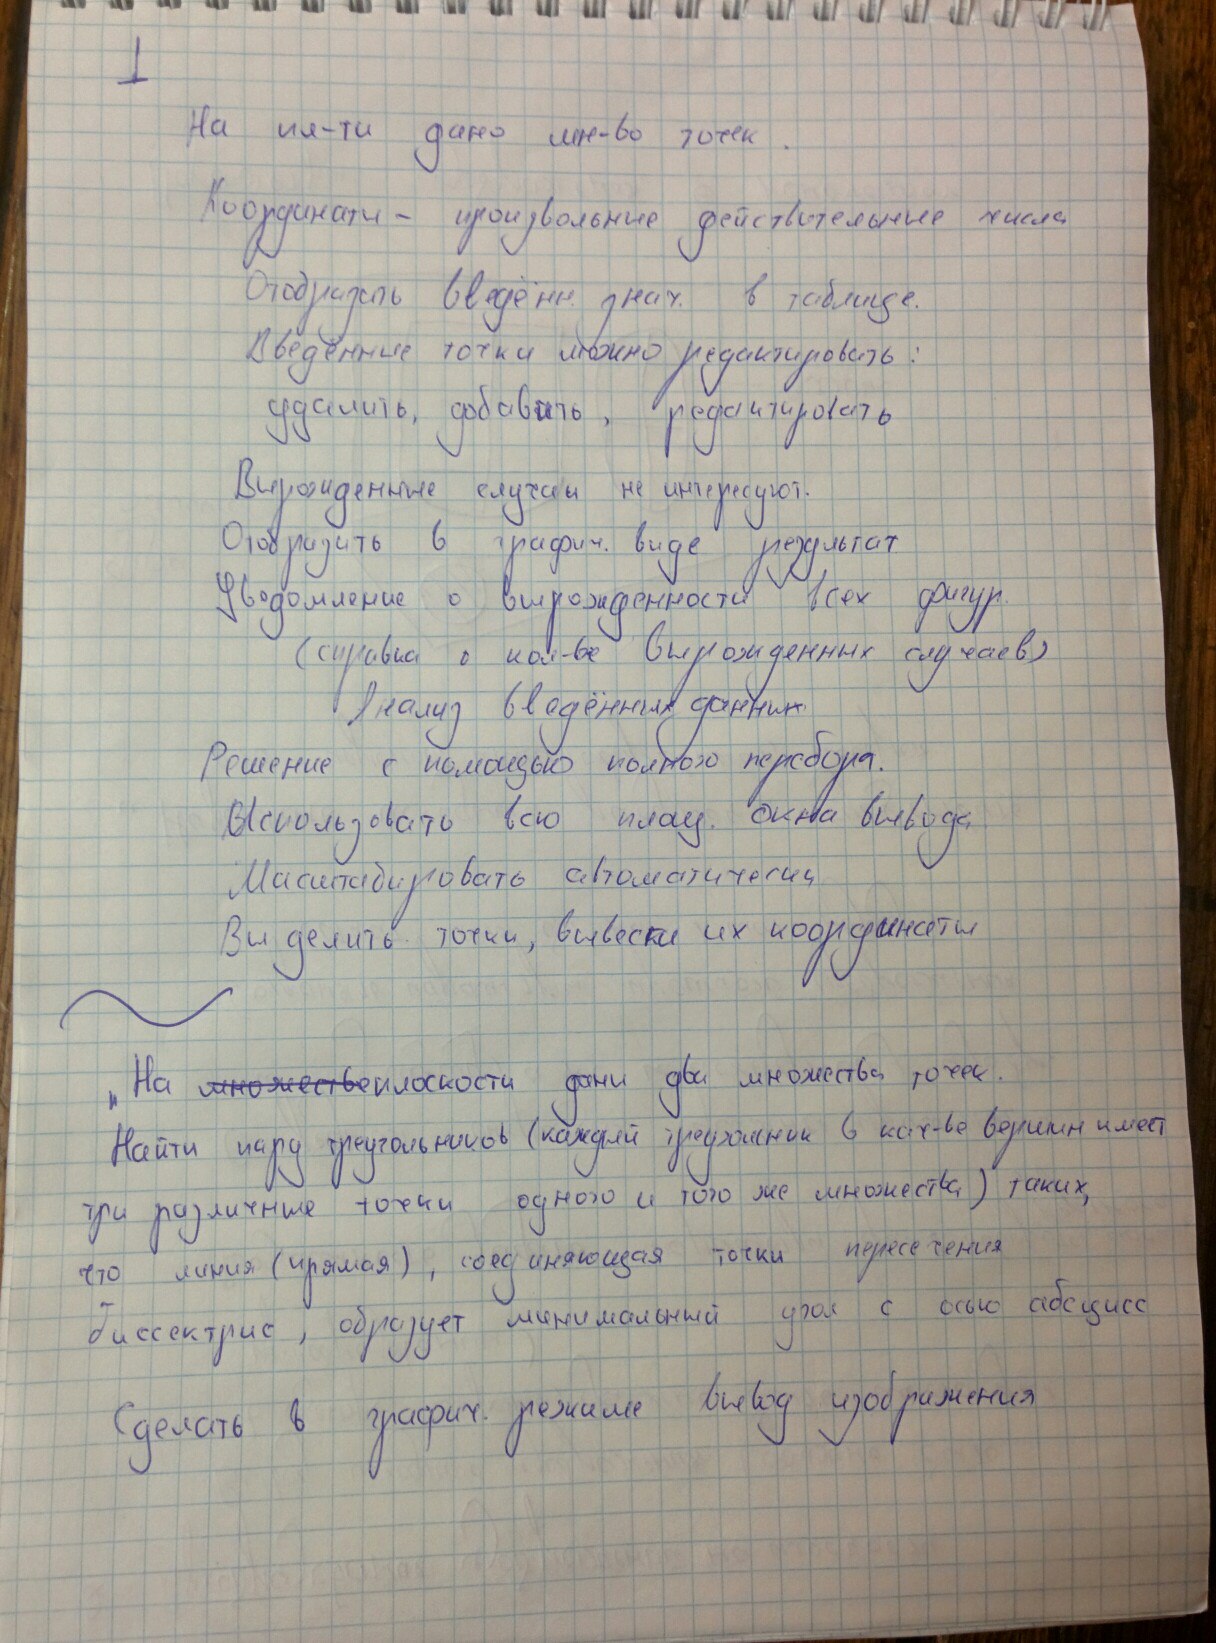 1
На пл-ти дано мн-во точек.
Координаты – произвольные действительные числа
Отобразить введённ. знач. в таблице.
Введённые точки можно редактировать:
удалить, добавить, редактировать
Вырожденные случаи не интересуют.
Отобразить в графич. виде результат
Уведомление о вырожденности всех фигур.
(справка о кол-ве вырожденных случаев)
Анализ введённых данных
Решение с помощью полного перебора.
Использовать всю площ. окна вывода
Масштабировать автоматически
Выделить точки, вывести их координаты
„На множестве плоскости даны два множества точек.
Найти пару треугольников (каждый треугольник в кач-ве вершин имеет
три различные точки одного и того же множества) таких,
что линия (прямая), соединяющая точки пересечения
биссектрис, образует минимальный угол с осью абсцисс
Сделать в графич. режиме вывод изображения